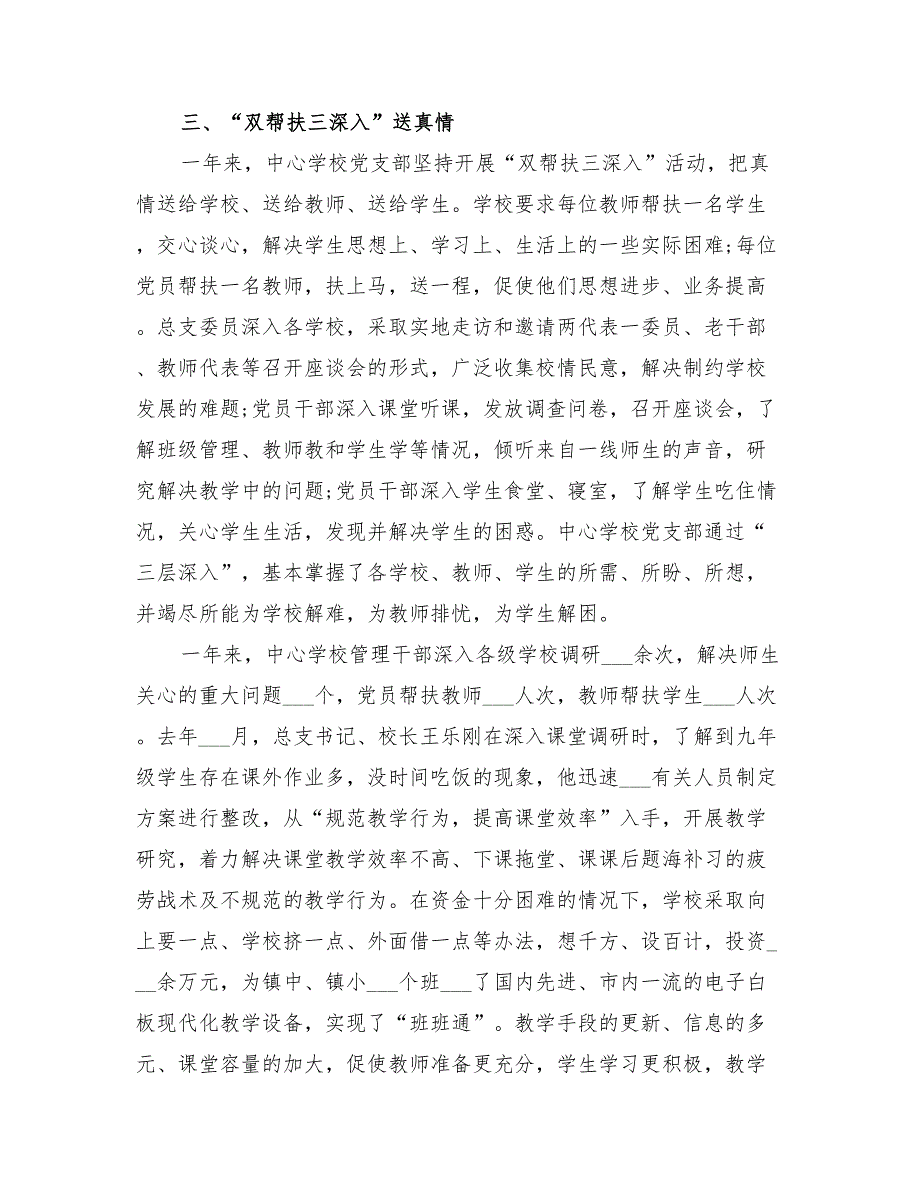 三、“双帮扶三深入”送真情
一年来，中心学校党支部坚持开展“双帮扶三深入”活动，把真
情送给学校、送给教师、送给学生。学校要求每位教师帮扶一名学生
，交心谈心，解决学生思想上、学习上、生活上的一些实际困难;每位
党员帮扶一名教师，扶上马，送一程，促使他们思想进步、业务提高
。总支委员深入各学校，采取实地走访和邀请两代表一委员、老干部
、教师代表等召开座谈会的形式，广泛收集校情民意，解决制约学校
发展的难题;党员干部深入课堂听课，发放调查问卷，召开座谈会，了
解班级管理、教师教和学生学等情况，倾听来自一线师生的声音，研
究解决教学中的问题;党员干部深入学生食堂、寝室，了解学生吃住情
况，关心学生生活，发现并解决学生的困惑。中心学校党支部通过“
三层深入”，基本掌握了各学校、教师、学生的所需、所盼、所想，
并竭尽所能为学校解难，为教师排忧，为学生解困。
一年来，中心学校管理干部深入各级学校调研___余次，解决师生
关心的重大问题___个，党员帮扶教师___人次，教师帮扶学生___人次
。去年___月，总支书记、校长王乐刚在深入课堂调研时，了解到九年
级学生存在课外作业多，没时间吃饭的现象，他迅速___有关人员制定
方案进行整改，从“规范教学行为，提高课堂效率”入手，开展教学
研究，着力解决课堂教学效率不高、下课拖堂、课课后题海补习的疲
劳战术及不规范的教学行为。在资金十分困难的情况下，学校采取向
上要一点、学校挤一点、外面借一点等办法，想千方、设百计，投资_
__余万元，为镇中、镇小___个班___了国内先进、市内一流的电子白
板现代化教学设备，实现了“班班通”。教学手段的更新、信息的多
元、课堂容量的加大，促使教师准备更充分，学生学习更积极，教学